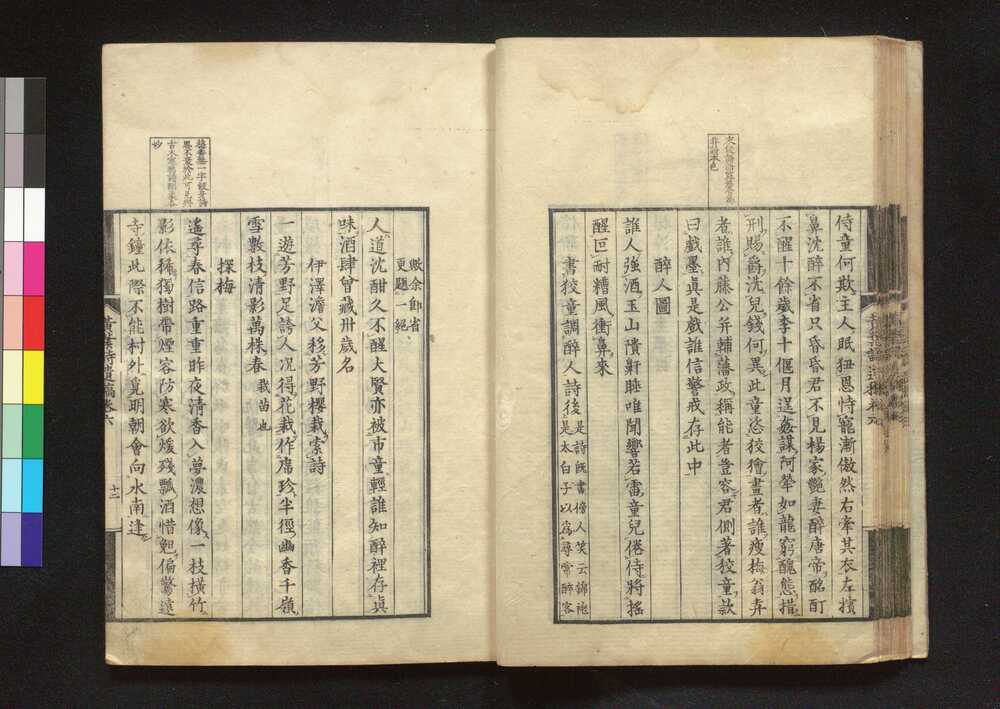 侍童何欺主人眠狃恩恃寵漸傲然右牽其衣左擯
鼻沈醉不省只昏昏君不見楊家艷妻醉唐帝酩酊
不醒十餘歲李十偃月逞姦謀阿犖如龍窮醜態措
刑賜爵洗兒錢何異此童恣狡獪畫者誰瘦梅翁弆
者誰內藤公幷輔藩政稱能者豈容君側著狡童款
曰戲墨眞是戲誰信警戒存此中
醉人圖
誰人強酒玉山隤鼾睡唯聞響若雷童兒倦侍將搖
醒叵耐糟風衝鼻來
書狡童調醉人詩後是詩旣書傍人笑云錦袍
是太白子以爲尋常醉客
幷證本色
嗾余卽省
更題一絕
人道沈酣久不醒大賢亦被市童輕誰知醉裡存眞
味酒肆曾藏卅歲名
伊澤澹父移芳野櫻栽索詩
一遊芳野足誇人况得花栽作席珍半徑幽香千嶺
雪數枝淸影萬株春栽苗也
探梅
遙尋春信路重重昨夜淸香入夢濃想像一枝橫竹
影依稀獨樹帶煙容防寒欲煖殘瓢酒惜
偏驚遠
寺鐘此際不能村外覓明朝會向水南逢
妙
黃葉夕陽
詩遺稿卷六
十二